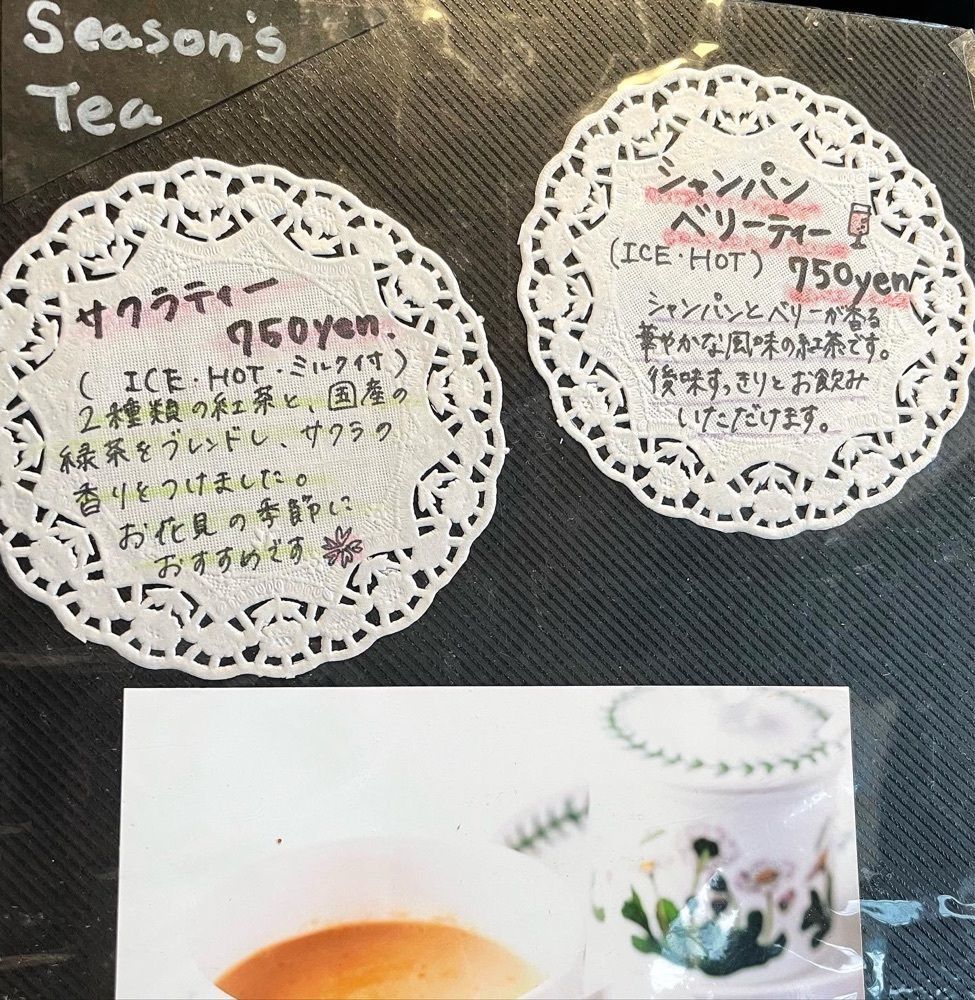 Season's
Tea
サクラティー
750yen.
( ICE・HOT・ミルクイ付)
2種類の紅茶と、国産の
緑茶をブレンドし、サクラの
香りをつけました。
お花見の季節に
おすすめです
シャンパン
ベリーティー
(ICE・HOT)
750yen
シャンパンとベリーが香る
華やかな風味の紅茶です。
後味すっきりとお飲み
いただけます。